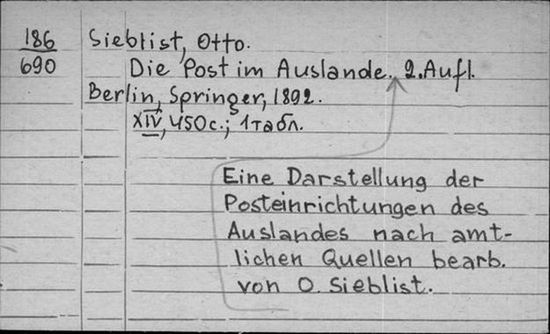 186
690
Sieblist, Otto.
Die Post im Auslande. 2. Aufl.
Berlin, Springer, 1892.
XIV, 450 с.; 1 табл.
Eine Darstellung der
Posteinrichtungen des
Auslandes nach amt-
lichen Quellen bearb.
von O. Sieblist.